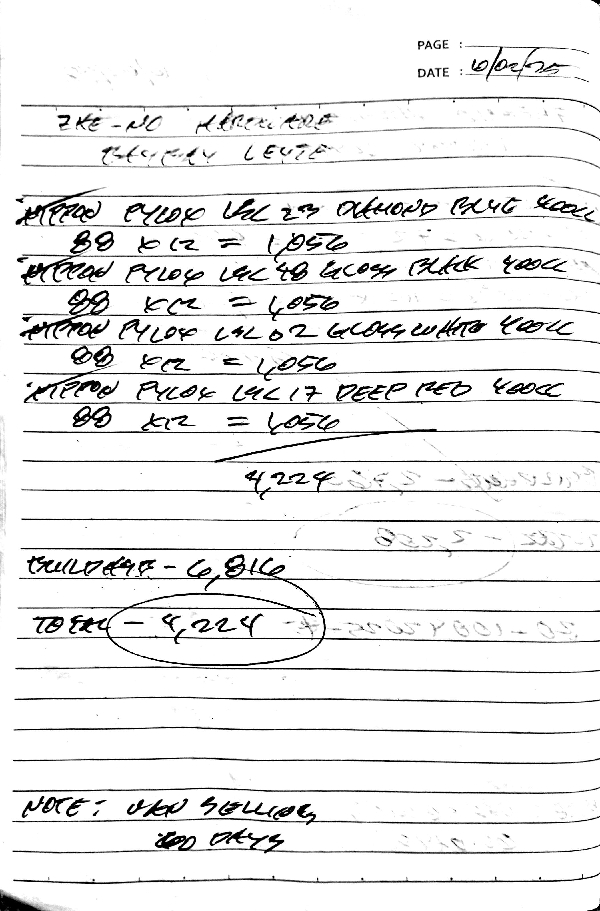 PAGE :
DATE : 6/02/25
ZKE-NO HARDWARE
BAYBAY LEYTE
NIPPON PYLOX LAC 23 DIAMOND BLUE 400CC
88 X12 = 1,056
NIPPON PYLOX LAC 48 GLOSS BLACK 400CC
88 X12 = 1,056
NIPPON PYLOX LAC 02 GLOSS WHITE 400CC
88 X12 = 1,056
NIPPON PYLOX LAC 17 DEEP RED 400CC
88 X12 = 1,056
4,224
- 6,816
TOTAL - 4,224
NOTE: VAN SELLING
DAYS